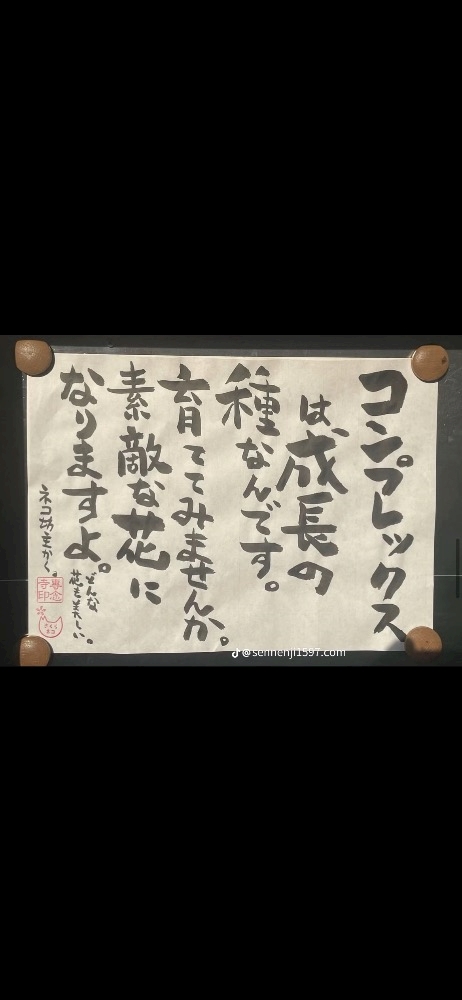 コンプレックス
は、成長の
種なんです。
育ててみませんか。
素敵な花に
なりますよ。
どんな
花も美しい。
ネコ坊主かく。
専念
寺印
さくら
ネコ
@sennenji1597.com